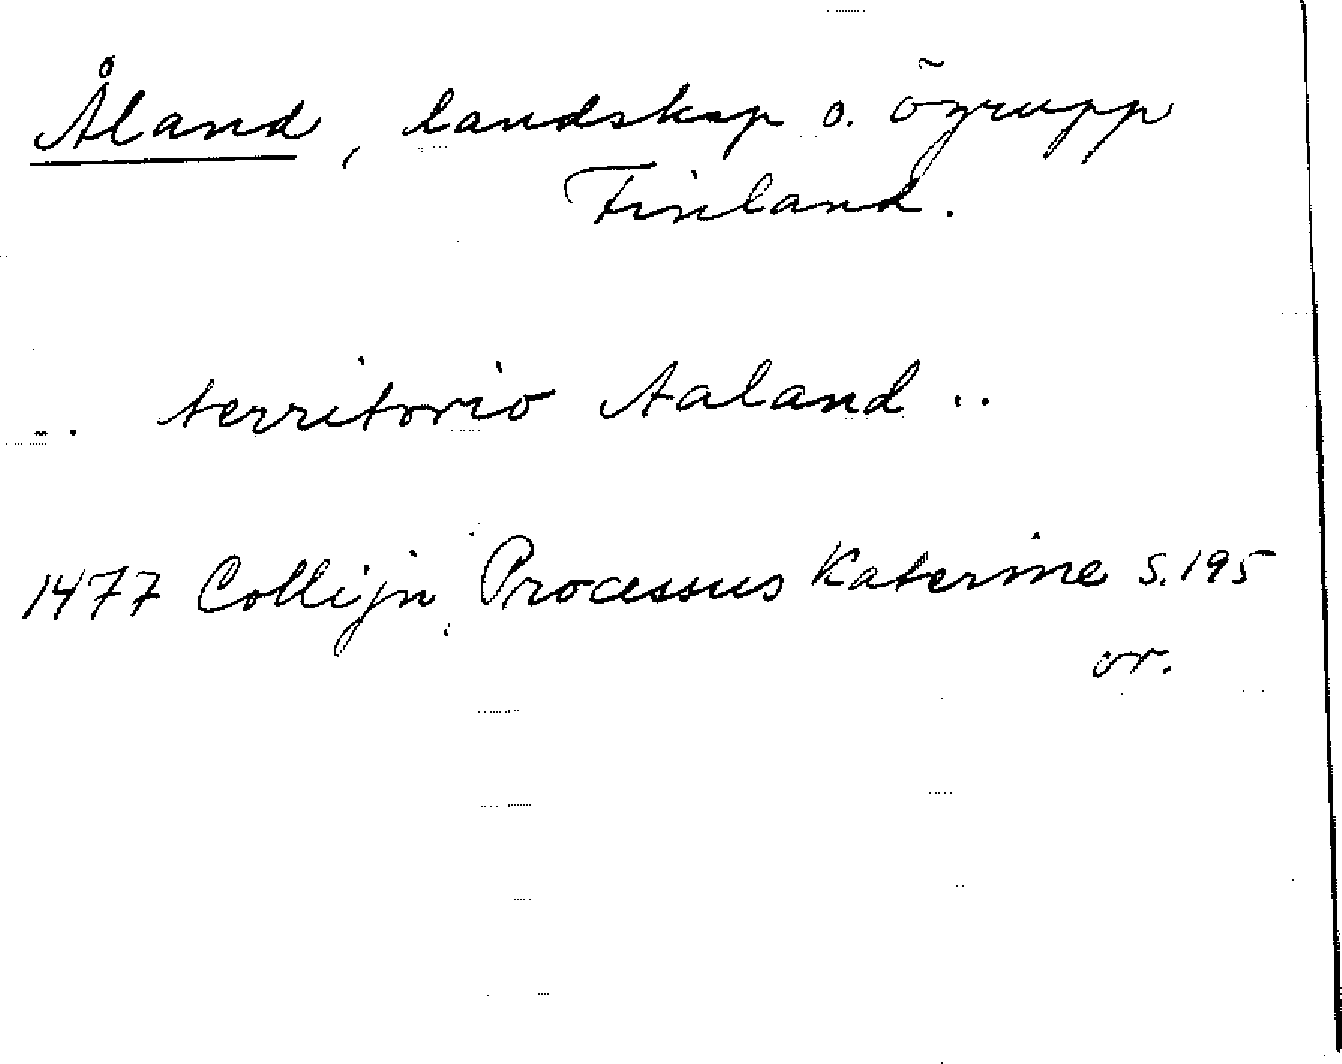 Åland, landskap o. ögrupp
Finland.
.. territorio Aaland ..
1477 Collijn, Processus Katerine s. 195
or.